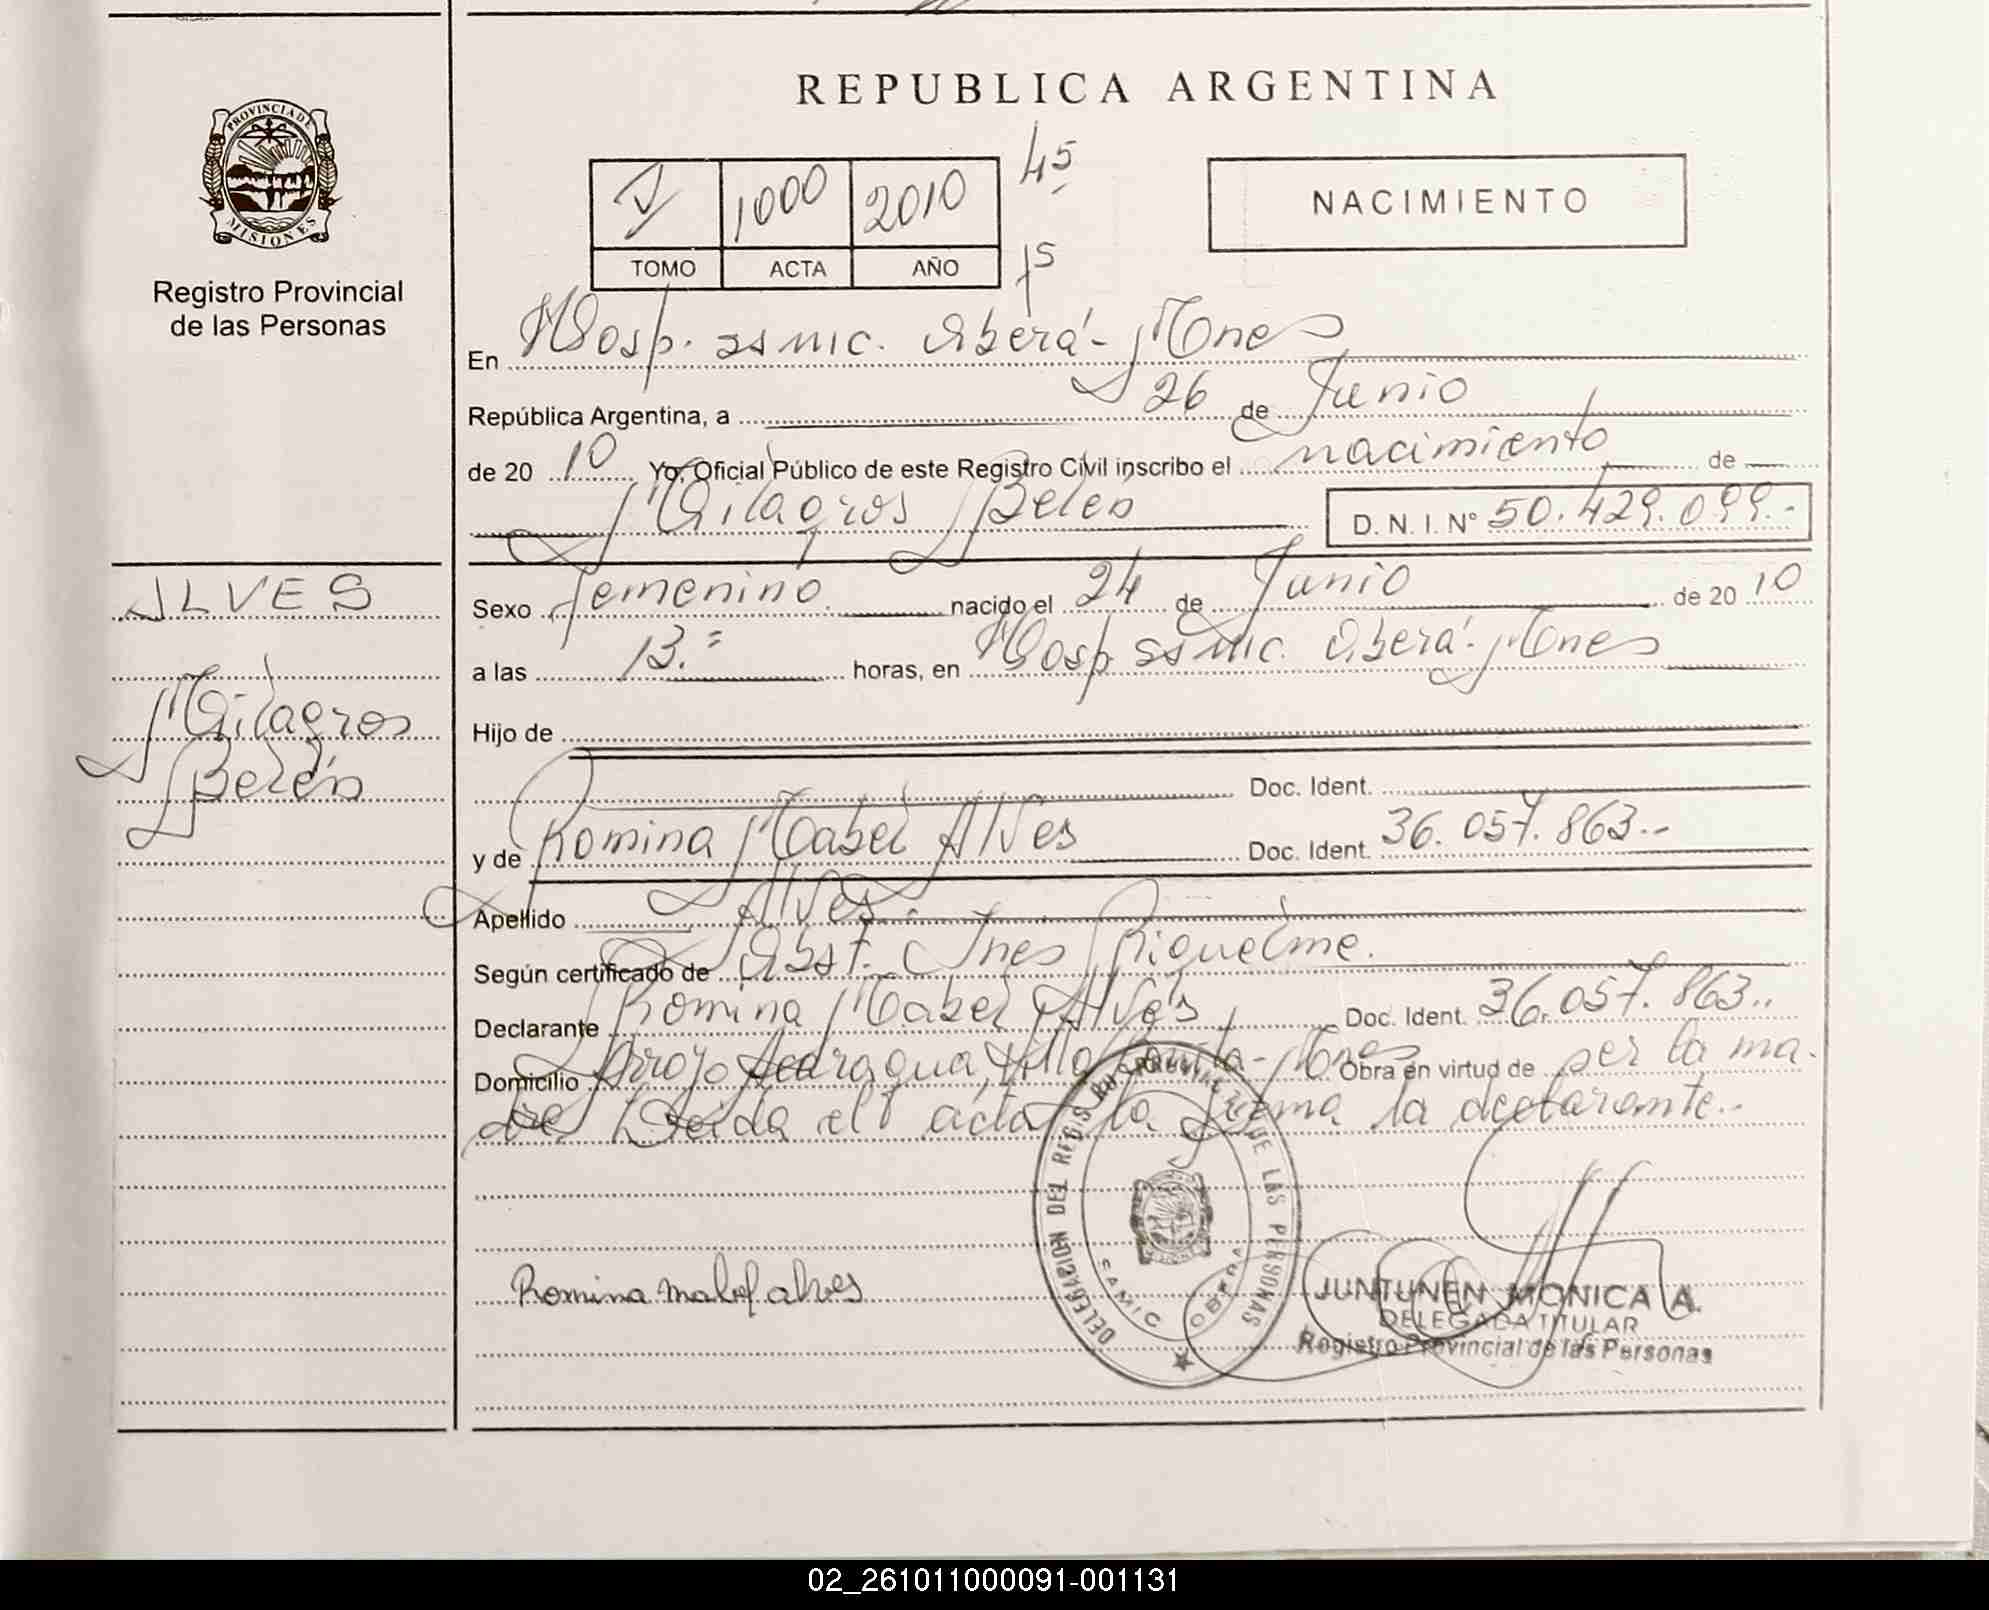 REPUBLICA ARGENTINA
PROVINCIA DE
MISIONES
Registro Provincial
de las Personas
1000 2010
45
TOMO ACTA AÑO
75
NACIMIENTO
En Hosp. ssmic. Oberá - Mnes
República Argentina, a 26 de Junio
de 20 10 Yo, Oficial Público de este Registro Civil inscribo el nacimiento de
Milagros Belén D. N. I. Nº 50.429.099.-
ALVES
Milagros
Belén
Sexo Femenino nacido el 24 de Junio de 20 10
a las 13.= horas, en Hosp ssmic. Oberá - Mnes
Hijo de
Doc. Ident.
y de Romina Mabel Alves Doc. Ident. 36.057.863.-
Apellido Alves.
Según certificado de Obst. Ines Riquelme.
Declarante Romina Mabel Alves Doc. Ident. 36.057.863..
Domicilio Arroyo Acaragua, Villa Bonita - Mnes Obra en virtud de ser la ma-
dre Leida el acta la firma la declarante.-
DELEGACION DEL REGIS. PROVINCIAL DE LAS PERSONAS
SAMIC OBERA
Romina mabel alves
JUNTUNEN MONICA A.
DELEGADA TITULAR
Registro Provincial de las Personas
02_261011000091-001131